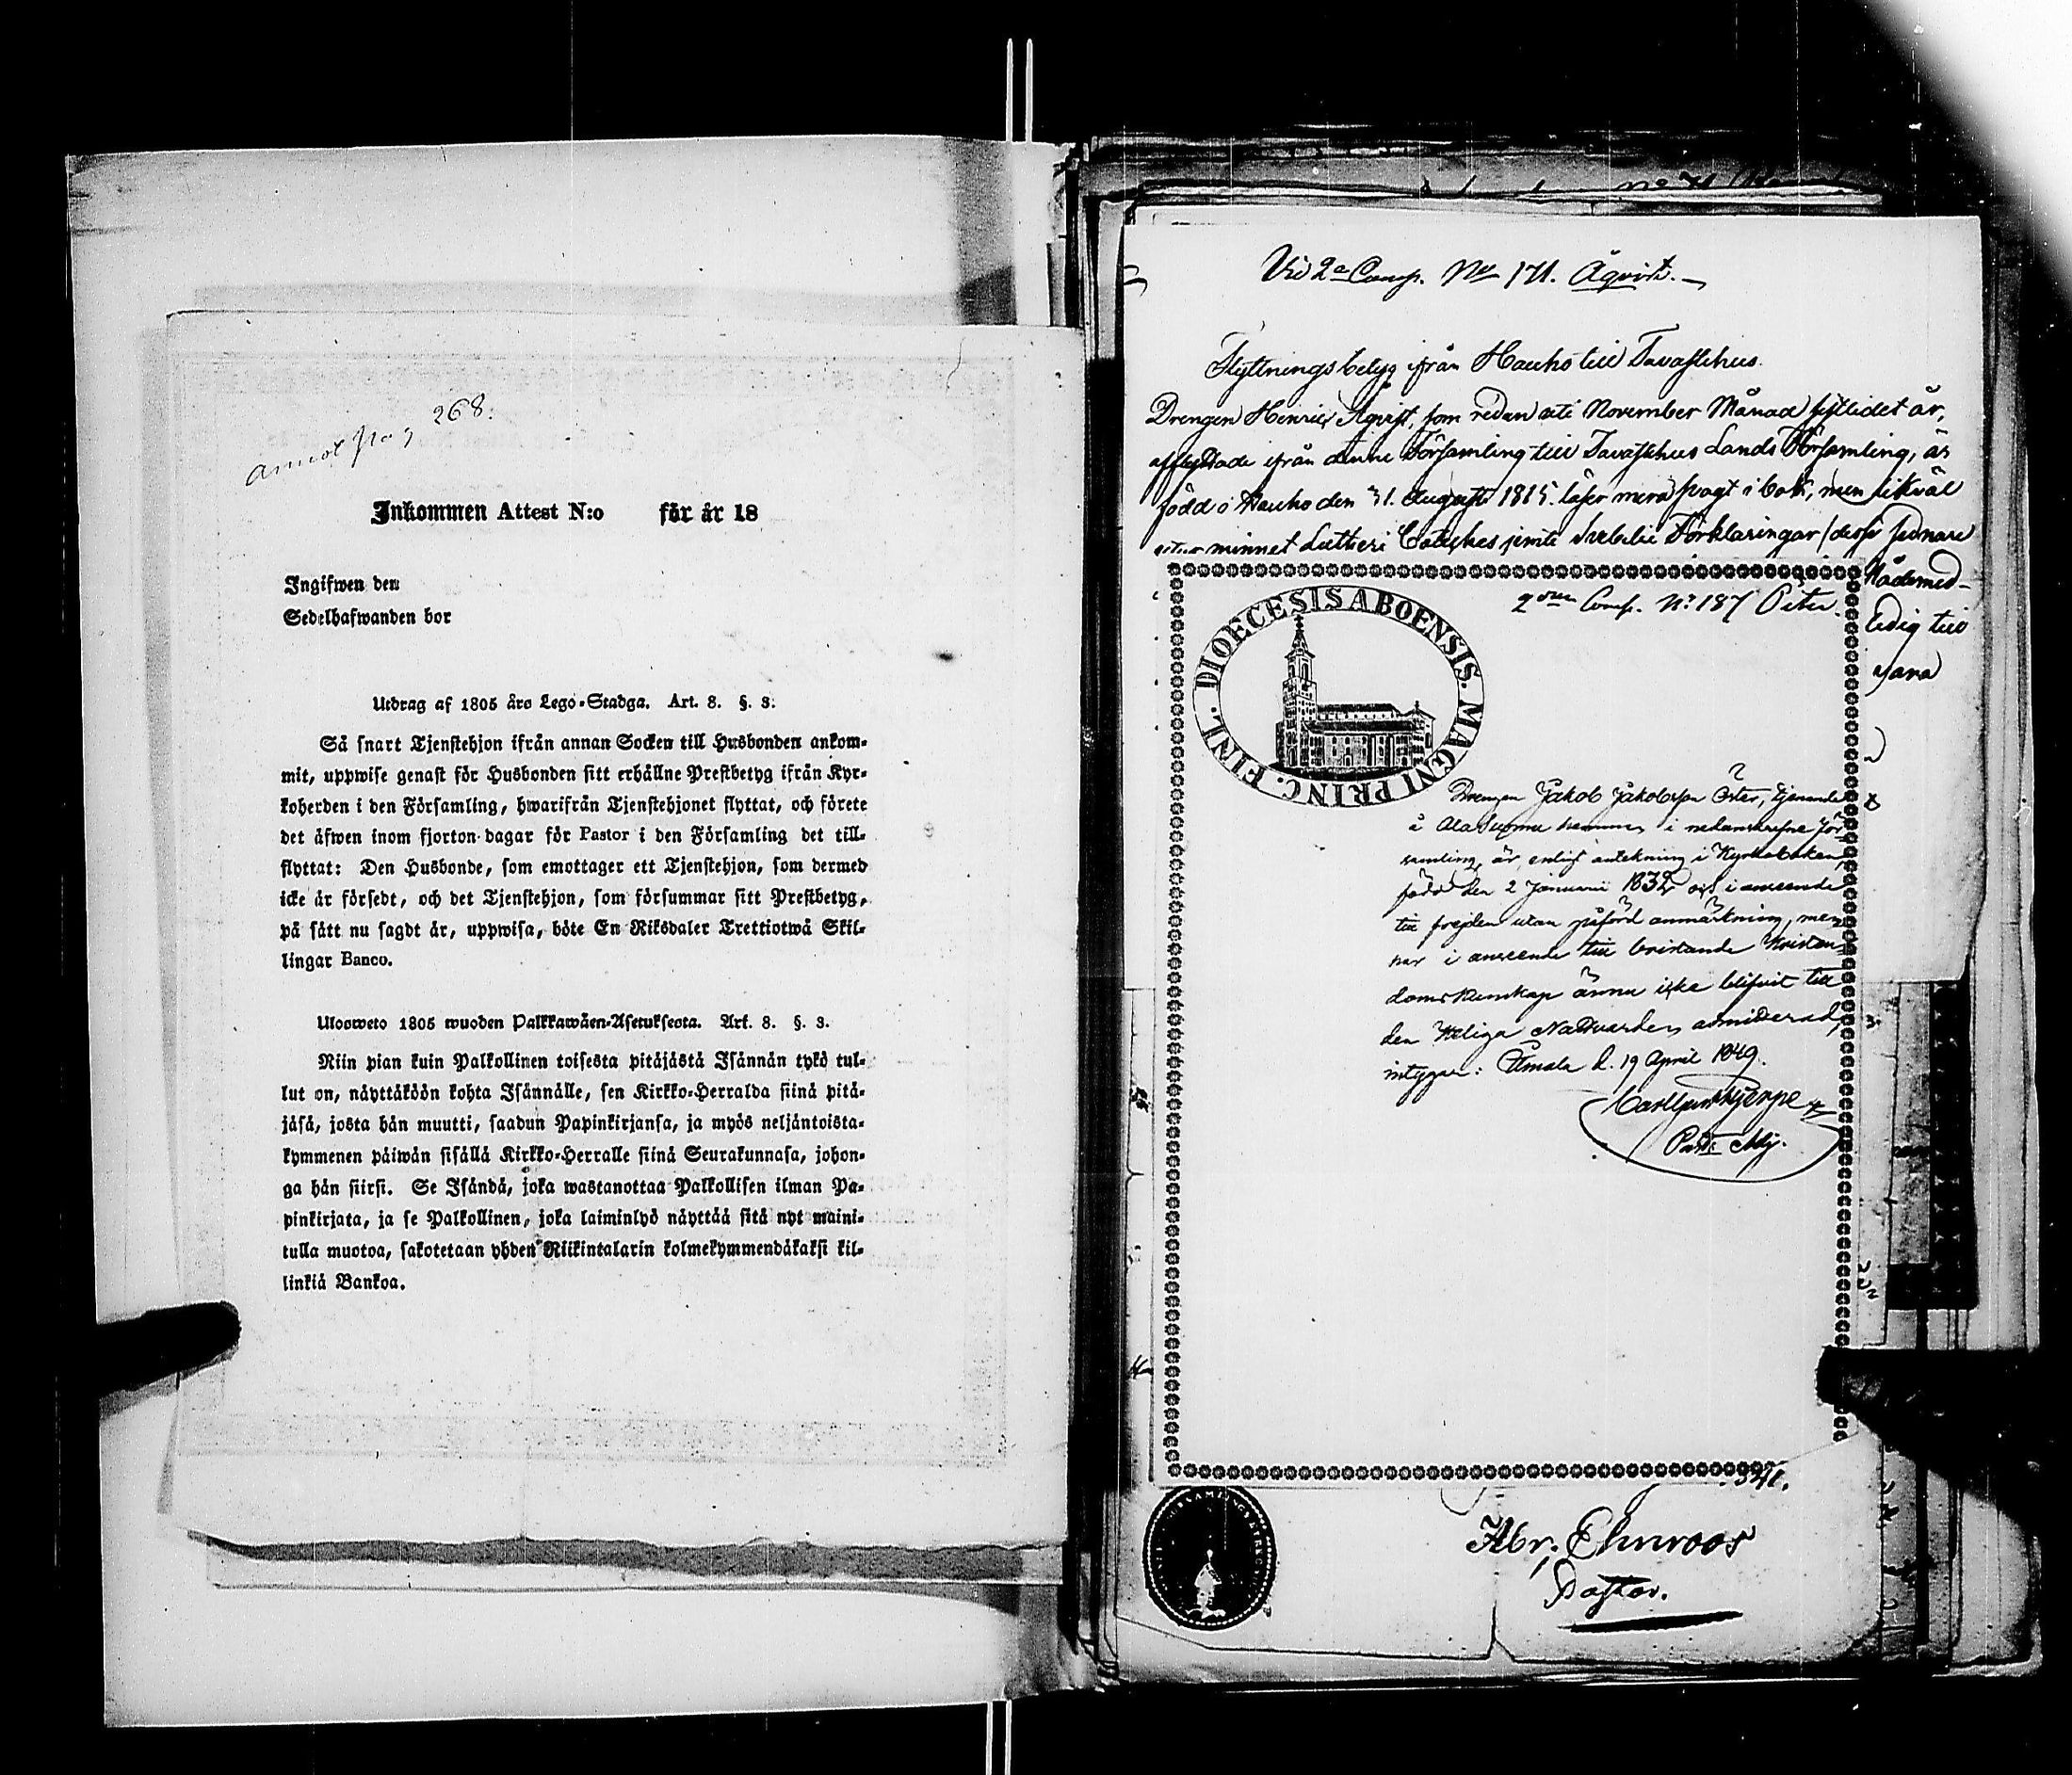 annot pag 268.
Inkommen Attest N:o för år 18
Ingifwen den
Sedelhafwanden bor
Utdrag af 1805 års Lego-Stadga. Art. 8. §. 3.
Så snart Tjenstehjon ifrån annan Socken till Husbonden ankom-
mit, uppwise genast för Husbonden sitt erhållne Prestbetyg ifrån Kyr-
koherden i den Församling, hwarifrån Tjenstehjonet flyttat, och förete
det äfwen inom fjorton dagar för Pastor i den Församling det till-
flyttat: Den Husbonde, som emottager ett Tjenstehjon, som dermed
icke är försedt, och det Tjenstehjon, som försummar sitt Prestbetyg,
på sätt nu sagdt är, uppwisa, böte En Riksdaler Trettiotwå Skil-
lingar Banco.
Ulosweto 1805 wuoden Palkkawäen-Asetuksesta. Art. 8. §. 3.
Niin pian kuin Palkollinen toisesta pitäjästä Isännän tykö tul-
lut on, näyttäköön kohta Isännälle, sen Kirkko-Herralda siinä pitä-
jäsä, josta hän muutti, saadun Papinkirjansa, ja myös neljäntoista-
kymmenen päiwän sisällä Kirkko-Herralle siinä Seurakunnasa, johon-
ga hän siirsi. Se Isändä, joka wastanottaa Palkollisen ilman Pa-
pinkirjata, ja se Palkollinen, joka laiminlyö näyttää sitä nyt maini-
tulla muotoa, sakotetaan yhden Riikintalarin kolmekymmendäkaksi kil-
linkiä Bankoa.
Vid 2a Comp. No 171. Åqvist.
Flyttningsbetyg ifrån Hauho till Tavastehus.
Drengen Henric Åqvist, som redan uti November Månad sistlidet år,
afflyttade ifrån denne Församling till Tavastehus Lands Församling, är
född i Hauho den 31. Augusti 1815. läser mera svagt i bok, men likväl
minnet Lutheri Cateches jemte Svebilii Förklaringar (dess sednare
Nådemed-
ledig till
vara
DIOECESIS ABOENSIS. MAGNI PRINC. FINL.
2dra Comp. No 187 Öster.
Drengen Jakob Jakobsson Öster, tjenande
å Alasuomu hemman i nedanskrefne För-
samling, är, enligt antekning i Kyrkoboken,
född den 2 Januarii 1832 och i anseende
till frejden utan påförd anmärkning, men
har i anseende till bristande Kristen-
domskunskap ännu icke blifvit till
den Heliga Nattvarden admitterad,
intygar: Urjala d. 19 April 1849.
Past. Adj.
Abr. Elmroos
Pastor.